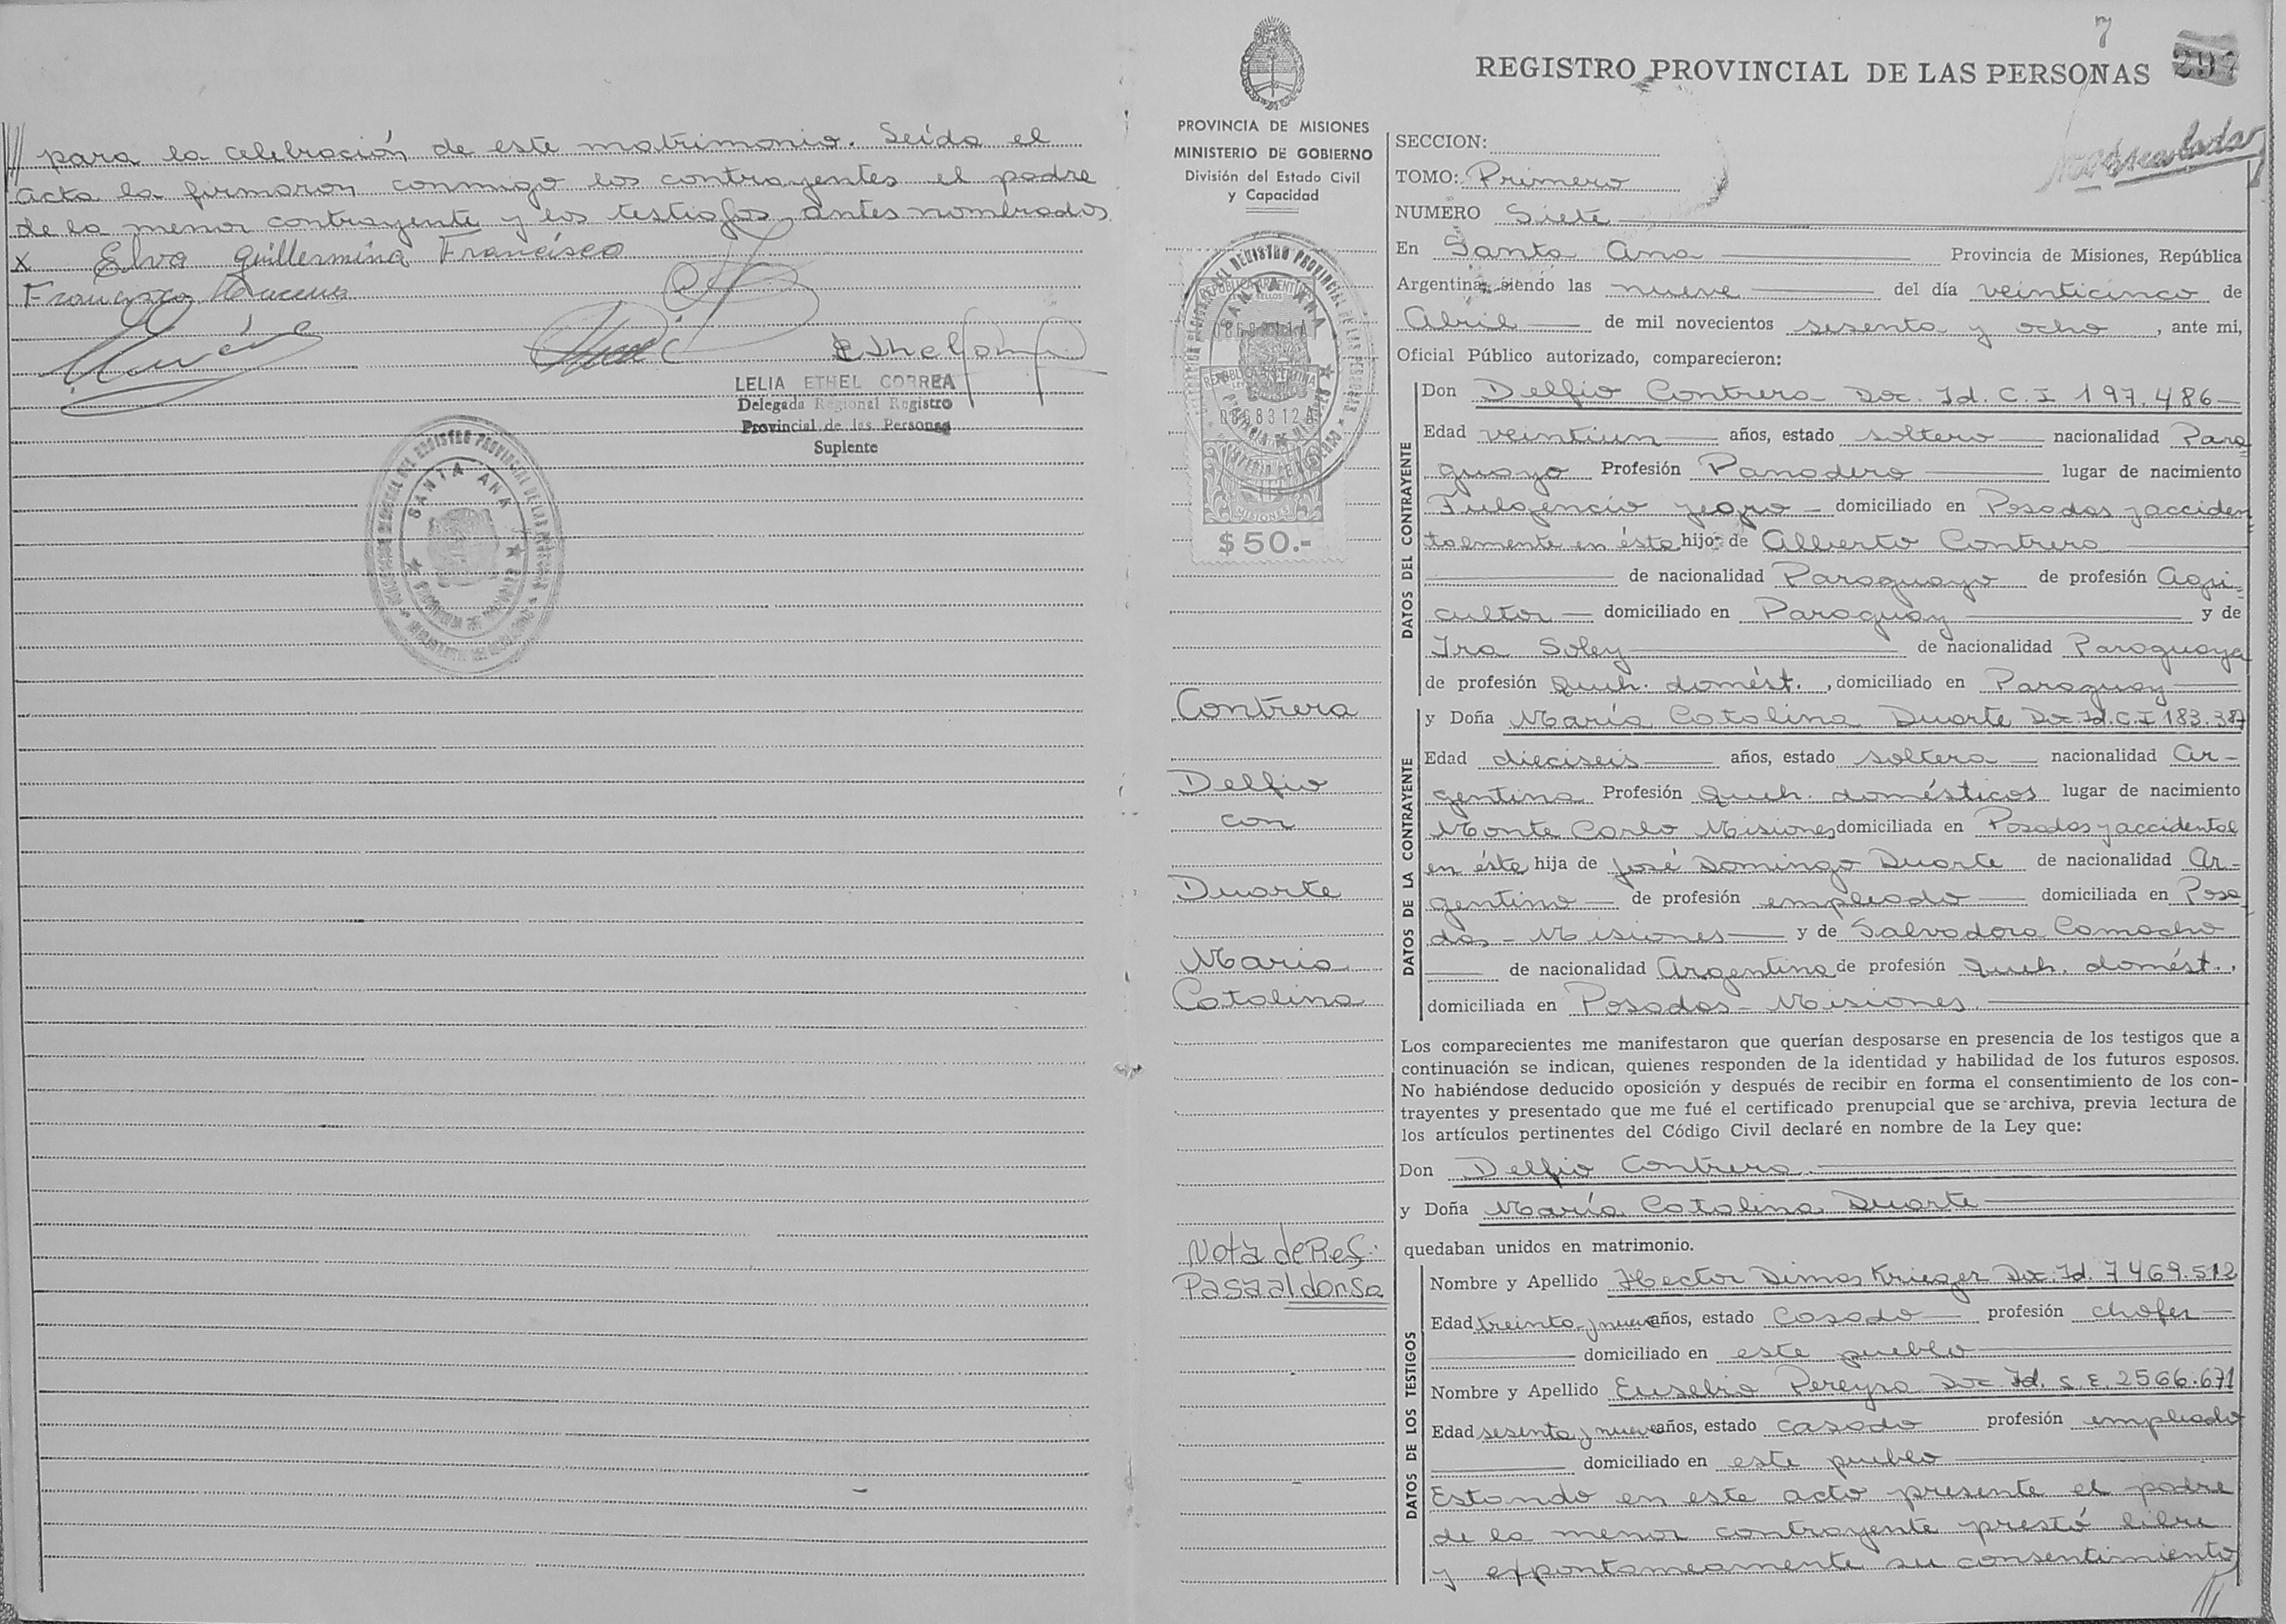 para la celebración de este matrimonio. Leída el
acta la firmaron conmigo los contrayentes el padre
de la menor contrayente y los testigos antes nombrados
x Elva Guillermina Francisco
Francisco
LELIA ETHEL CORREA
Delegada Regional Registro
Provincial de las Personas
Suplente
SANTA ANA
7
REGISTRO PROVINCIAL DE LAS PERSONAS
PROVINCIA DE MISIONES
MINISTERIO DE GOBIERNO
División del Estado Civil
y Capacidad
SANTA ANA
$50.-
Contrera
Delfio
con
Duarte
María
Catalina
Nota de Ref:
Pasa al dorso
SECCION:
TOMO: Primero
NUMERO Siete
En Santa Ana Provincia de Misiones, República
Argentina, siendo las nueve del día veinticinco de
Abril de mil novecientos sesenta y ocho, ante mi,
Oficial Público autorizado, comparecieron:
DATOS DEL CONTRAYENTE
Don Delfio Contrera Doc. Id. C.I 197.486
Edad veintiun años, estado soltero nacionalidad Para
guayo Profesión Panadero lugar de nacimiento
Fulgencio yegro domiciliado en Posadas y acciden
talmente en ésta hijo de Alberto Contrera
de nacionalidad Paraguayo de profesión Agri-
cultor domiciliado en Paraguay y de
Ira Soley de nacionalidad Paraguaya
de profesión Queh. domést., domiciliado en Paraguay
DATOS DE LA CONTRAYENTE
y Doña María Catalina Duarte Doc Id. C.I 183.387
Edad dieciseis años, estado soltera nacionalidad Ar-
gentina Profesión Queh. domésticos lugar de nacimiento
Monte Carlo Misiones domiciliada en Posadas y accidental
en ésta hija de José Domingo Duarte de nacionalidad Ar-
gentino de profesión empleado domiciliada en Posa
das - Misiones y de Salvadora Camacho
de nacionalidad Argentina de profesión Queh. domést.,
domiciliada en Posadas - Misiones
Los comparecientes me manifestaron que querían desposarse en presencia de los testigos que a
continuación se indican, quienes responden de la identidad y habilidad de los futuros esposos.
No habiéndose deducido oposición y después de recibir en forma el consentimiento de los con-
trayentes y presentado que me fué el certificado prenupcial que se archiva, previa lectura de
los artículos pertinentes del Código Civil declaré en nombre de la Ley que:
Don Delfio Contrera
y Doña María Catalina Duarte
quedaban unidos en matrimonio.
DATOS DE LOS TESTIGOS
Nombre y Apellido Hector Dimas Krieger Doc. Id. 7469.512
Edad treinta y nueve años, estado Casado profesión chofer
domiciliado en este pueblo
Nombre y Apellido Eusebio Pereyra Doc Id. S.E. 2566.671
Edad sesenta y nueve años, estado casado profesión empleado
domiciliado en este pueblo
Estando en este acto presente el padre
de la menor contrayente prestó libre
y expontaneamente su consentimiento